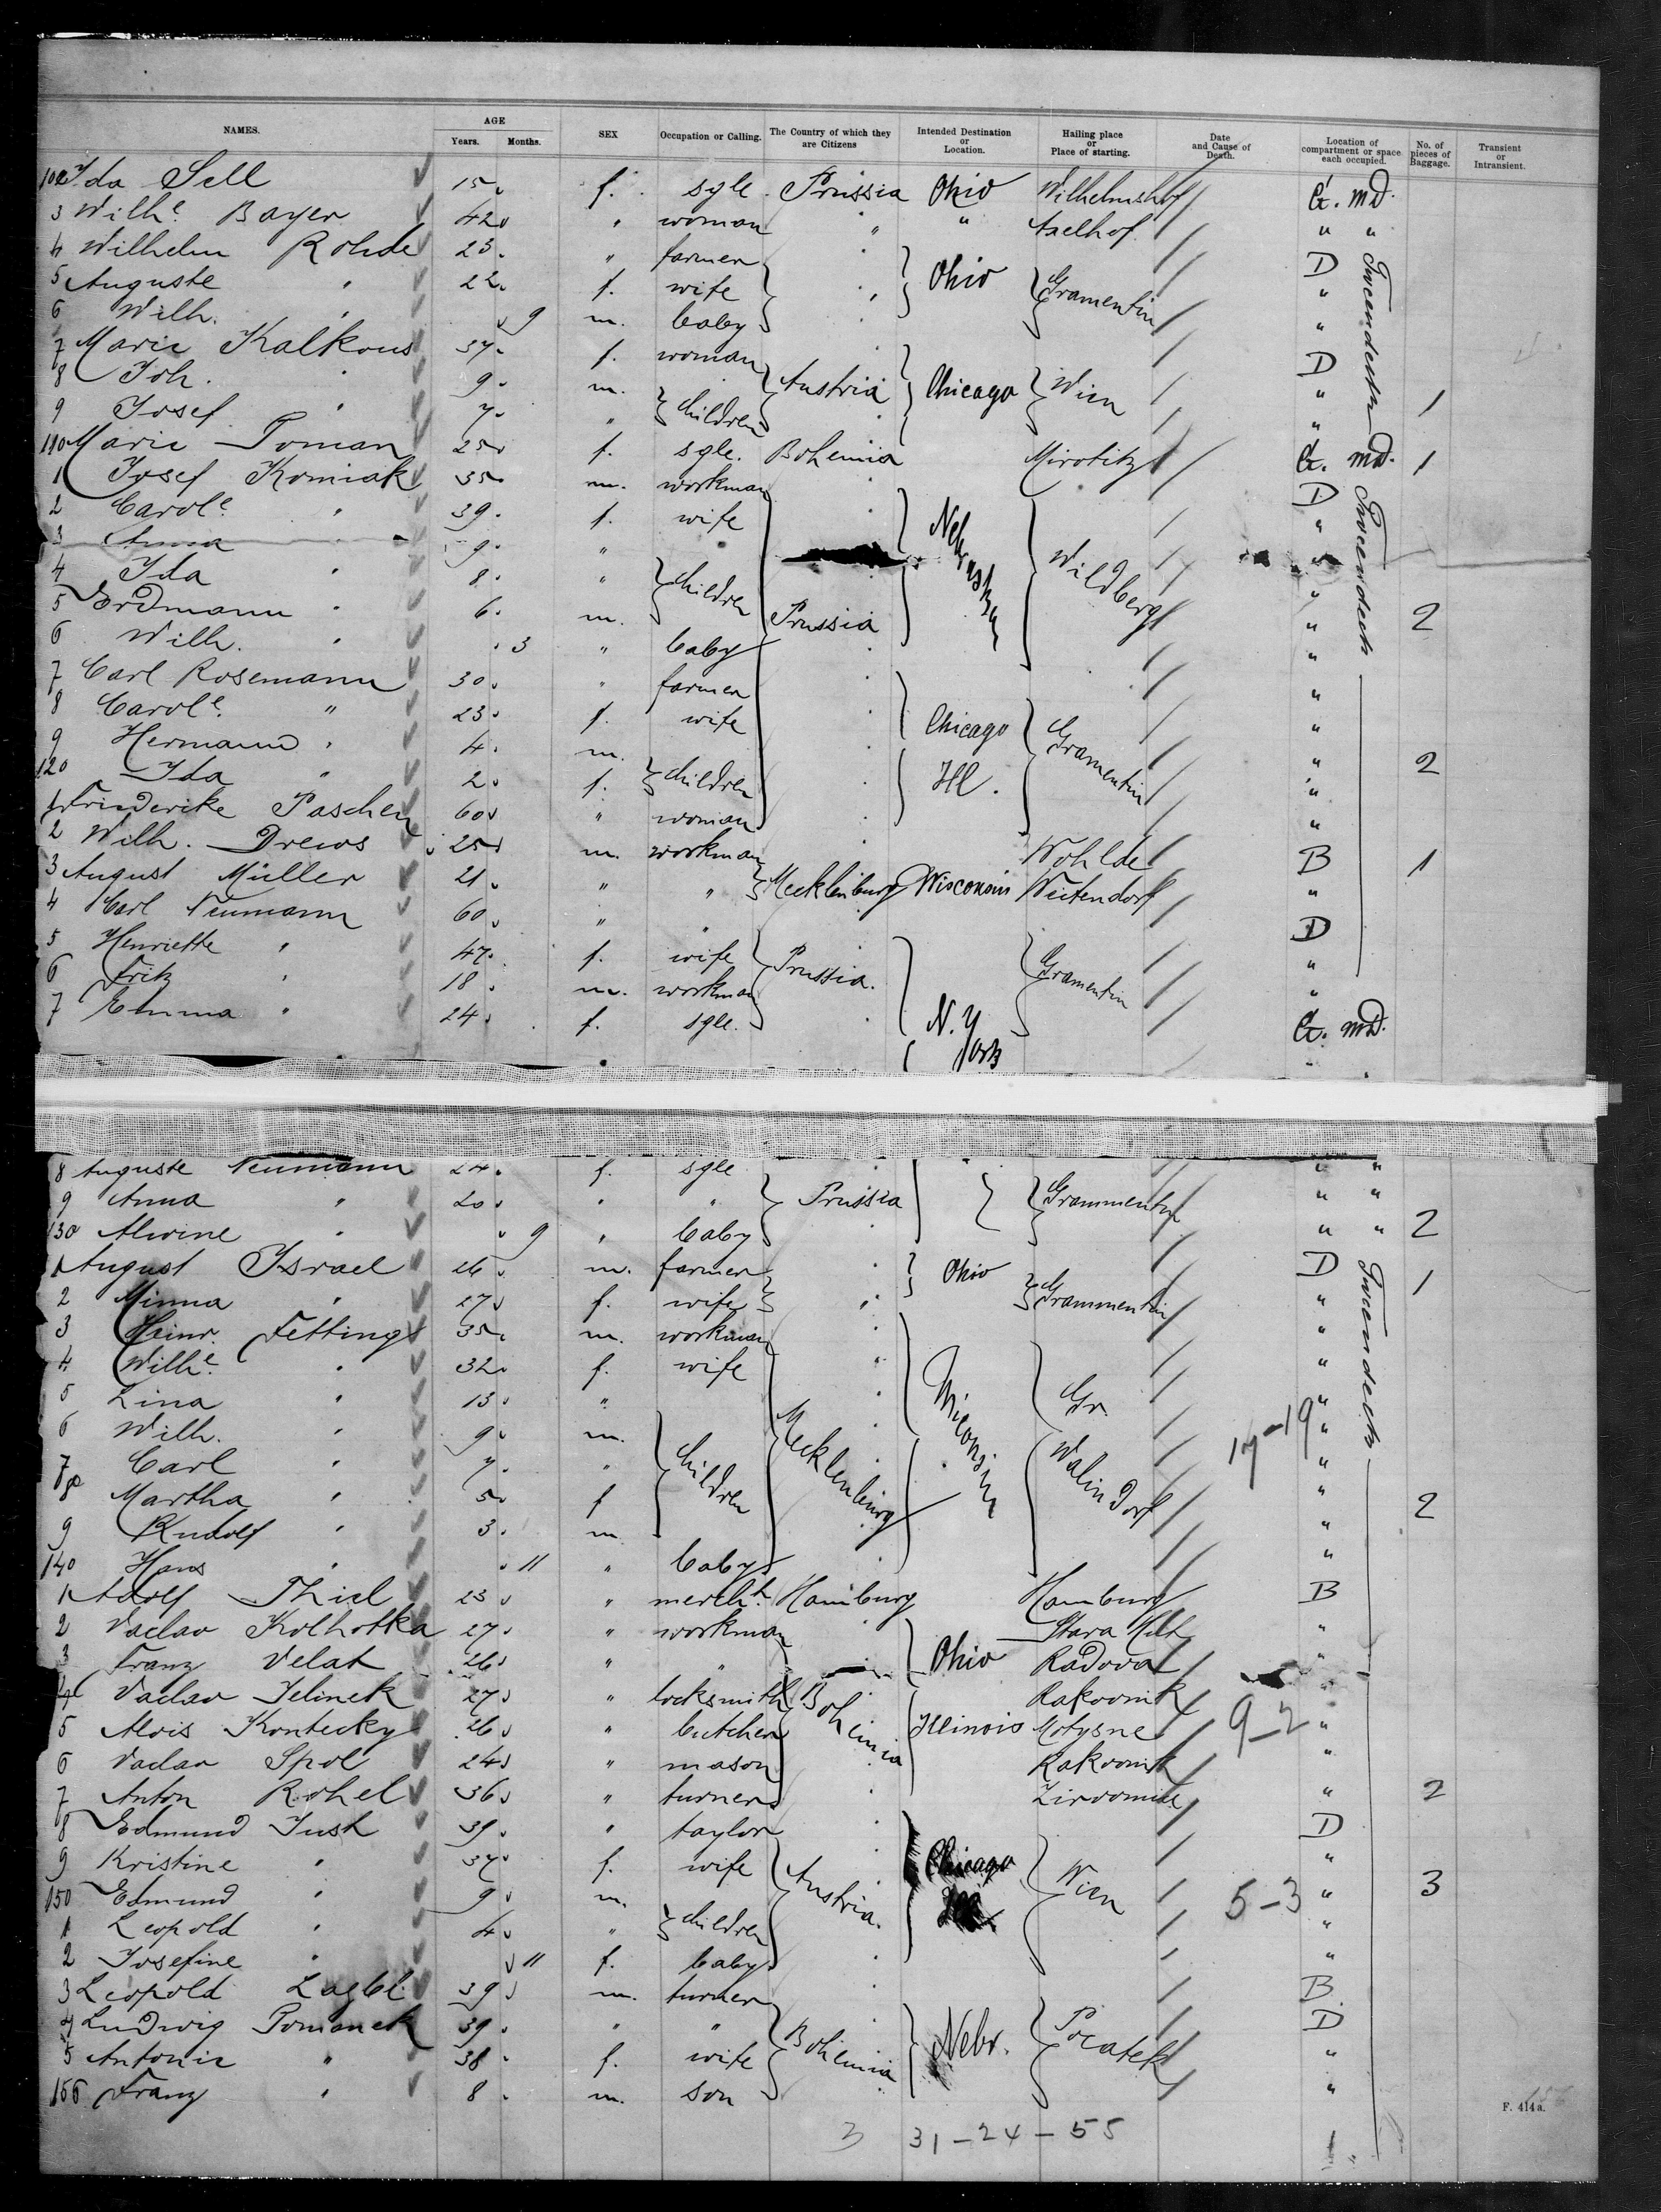 NAMES. AGE SEX Occupation or Calling. The Country of which they are Citizens Intended Destination or Location. Hailing place or Place of starting. Date and Cause of Death. Location of compartment or space each occupied. No. of pieces of Baggage. Transient or Intransient.
Years. Months.
102 Ida Sell 15 f. sgle. Prussia Ohio Wilhelmshof G. md.
3 Wilhe. Bayer 42 " woman " " Axelhof " "
4 Wilhelm Rohde 23 " farmer D
5 Auguste " 22 f. wife " Ohio Gramentin "
6 Wilh. " 9 m. baby "
7 Marie Kalkous 37 f. woman D
8 Joh. " 9 m. Austria Chicago Wien " 1
9 Josef " 7 " children "
110 Marie Toman 25 f. sgle. Bohemia Mirotitz G. md. 1
1 Josef Komiak 35 m. workman D
2 Carole. " 39 f. wife Nebraska "
3 Anna " 9 " "
4 Ida " 8 " children Wildberg "
5 Erdmann " 6 m. Prussia " 2
6 Wilh. " 3 " baby "
7 Carl Rosemann 30 " farmer "
8 Carole. " 23 f. wife Chicago "
9 Hermann " 4 m. Gramentin " 2
120 Ida " 2 f. children Ill. "
1 Friederike Paschen 60 " woman "
2 Wilh. Drews 25 m. workman Wohlde B 1
3 August Müller 21 " " Mecklenburg Wisconsin Weitendorf "
4 Carl Neumann 60 " " D
5 Henriette " 47 f. wife Prussia. Gramentin "
6 Fritz " 18 m. workman "
7 Emma " 24 f. sgle. N. York G. md.
8 Auguste Neumann 24 f. sgle " "
9 Anna " 20 " " Prussia Grammentin " "
130 Alwine " 9 " baby " " 2
1 August Israel 26 m. farmer Ohio D 1
2 Minna " 27 f. wife " Grammentin "
3 Heinr. Fettings 35 m. workman "
4 Wilhe. " 32 f. wife "
5 Lina " 13 " Wiconsin Gr. "
6 Wilh. " 9 m. Mecklenburg Walindorf 17-19 "
7 Carl " 7 " children "
8 Martha " 5 f " 2
9 Rudolf " 3 m "
140 Hans " 11 " baby "
1 Adolf Thiel 23 " mercht. Hamburg Hamburg B
2 Vaclav Kolhotka 27 " workman Stara "
3 Franz Velat 26 " " Ohio Radova "
4 Vaclav Jelinek 27 " locksmith Bohemia Rakovnik "
5 Alois Kontecky 26 " butcher Illinois Motysne 9-2 "
6 Vaclav Spol 24 " mason Rakovnik "
7 Anton Rohel 36 " turner " 2
8 Edmund Just 39 " taylor D
9 Kristine " 37 f. wife Austria. Chicago Wien "
150 Edmund " 9 m. Ill 5-3 " 3
1 Leopold " 4 " children "
2 Josefine " 11 f. baby "
3 Leopold 39 m. turner B
4 Ludwig Tomanek 39 " " D
5 Antonie " 38 f. wife Bohemia Nebr. Pocatek "
156 Franz " 8 m. son "
Tweendeck
Tweendeck
Tweendeck
3 31-24-55
F. 414a.